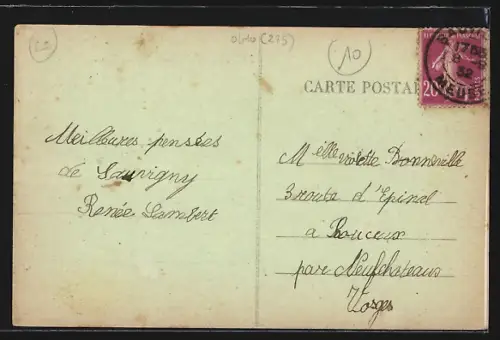 (275)
10
CARTE POSTALE
20
Meilleures pensées
de Sauvigny
Renée Lambert
Melle Violette Bonneville
3 route d'Epinal
à Rouceux
par Neufchateau
Vosges